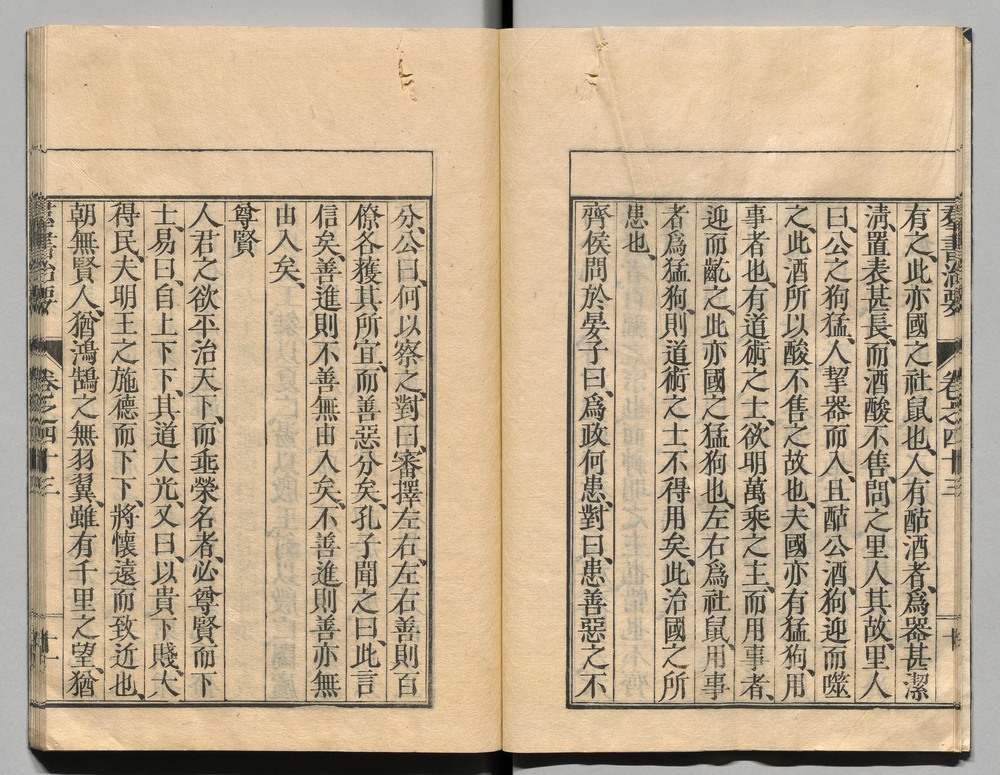 羣書治要 卷之四十三 十
有之、此亦國之社鼠也、人有酤酒者、爲器甚潔
淸、置表甚長、而酒酸不售、問之里人其故、里人
曰、公之狗猛、人挈器而入、且酤公酒、狗迎而噬
之、此酒所以酸不售之故也、夫國亦有猛狗、用
事者也、有道術之士、欲明萬乘之主、而用事者、
迎而齕之、此亦國之猛狗也、左右爲社鼠、用事
者爲猛狗、則道術之士不得用矣、此治國之所
患也、
齊侯問於晏子曰、爲政何患、對曰、患善惡之不
分、公曰、何以察之、對曰、審擇左右、左右善、則百
僚各獲其所宜、而善惡分矣、孔子聞之曰、此言
信矣、善進則不善無由入矣、不善進則善亦無
由入矣、
尊賢
人君之欲平治天下、而垂榮名者、必尊賢而下
士、易曰、自上下下、其道大光、又曰、以貴下賤、大
得民、夫明王之施德而下下、將懷遠而致近也、
朝無賢人、猶鴻鵠之無羽翼、雖有千里之望、猶
羣書治要 卷之四十三 十一